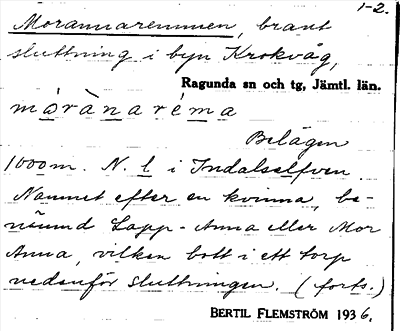 1-2.
Morannaremmen, brant
sluttning i byn Krokvåg,
Ragunda sn och tg, Jämtl. län.
mòrànaréma
Belägen
1000 m. N. l i Indalselfven.
Namnet efter en kvinna, be-
nämnd Lapp-Anna eller Mor
Anna, vilken bott i ett torp
nedanför sluttningen. (forts.)
BERTIL FLEMSTRÖM 1936.